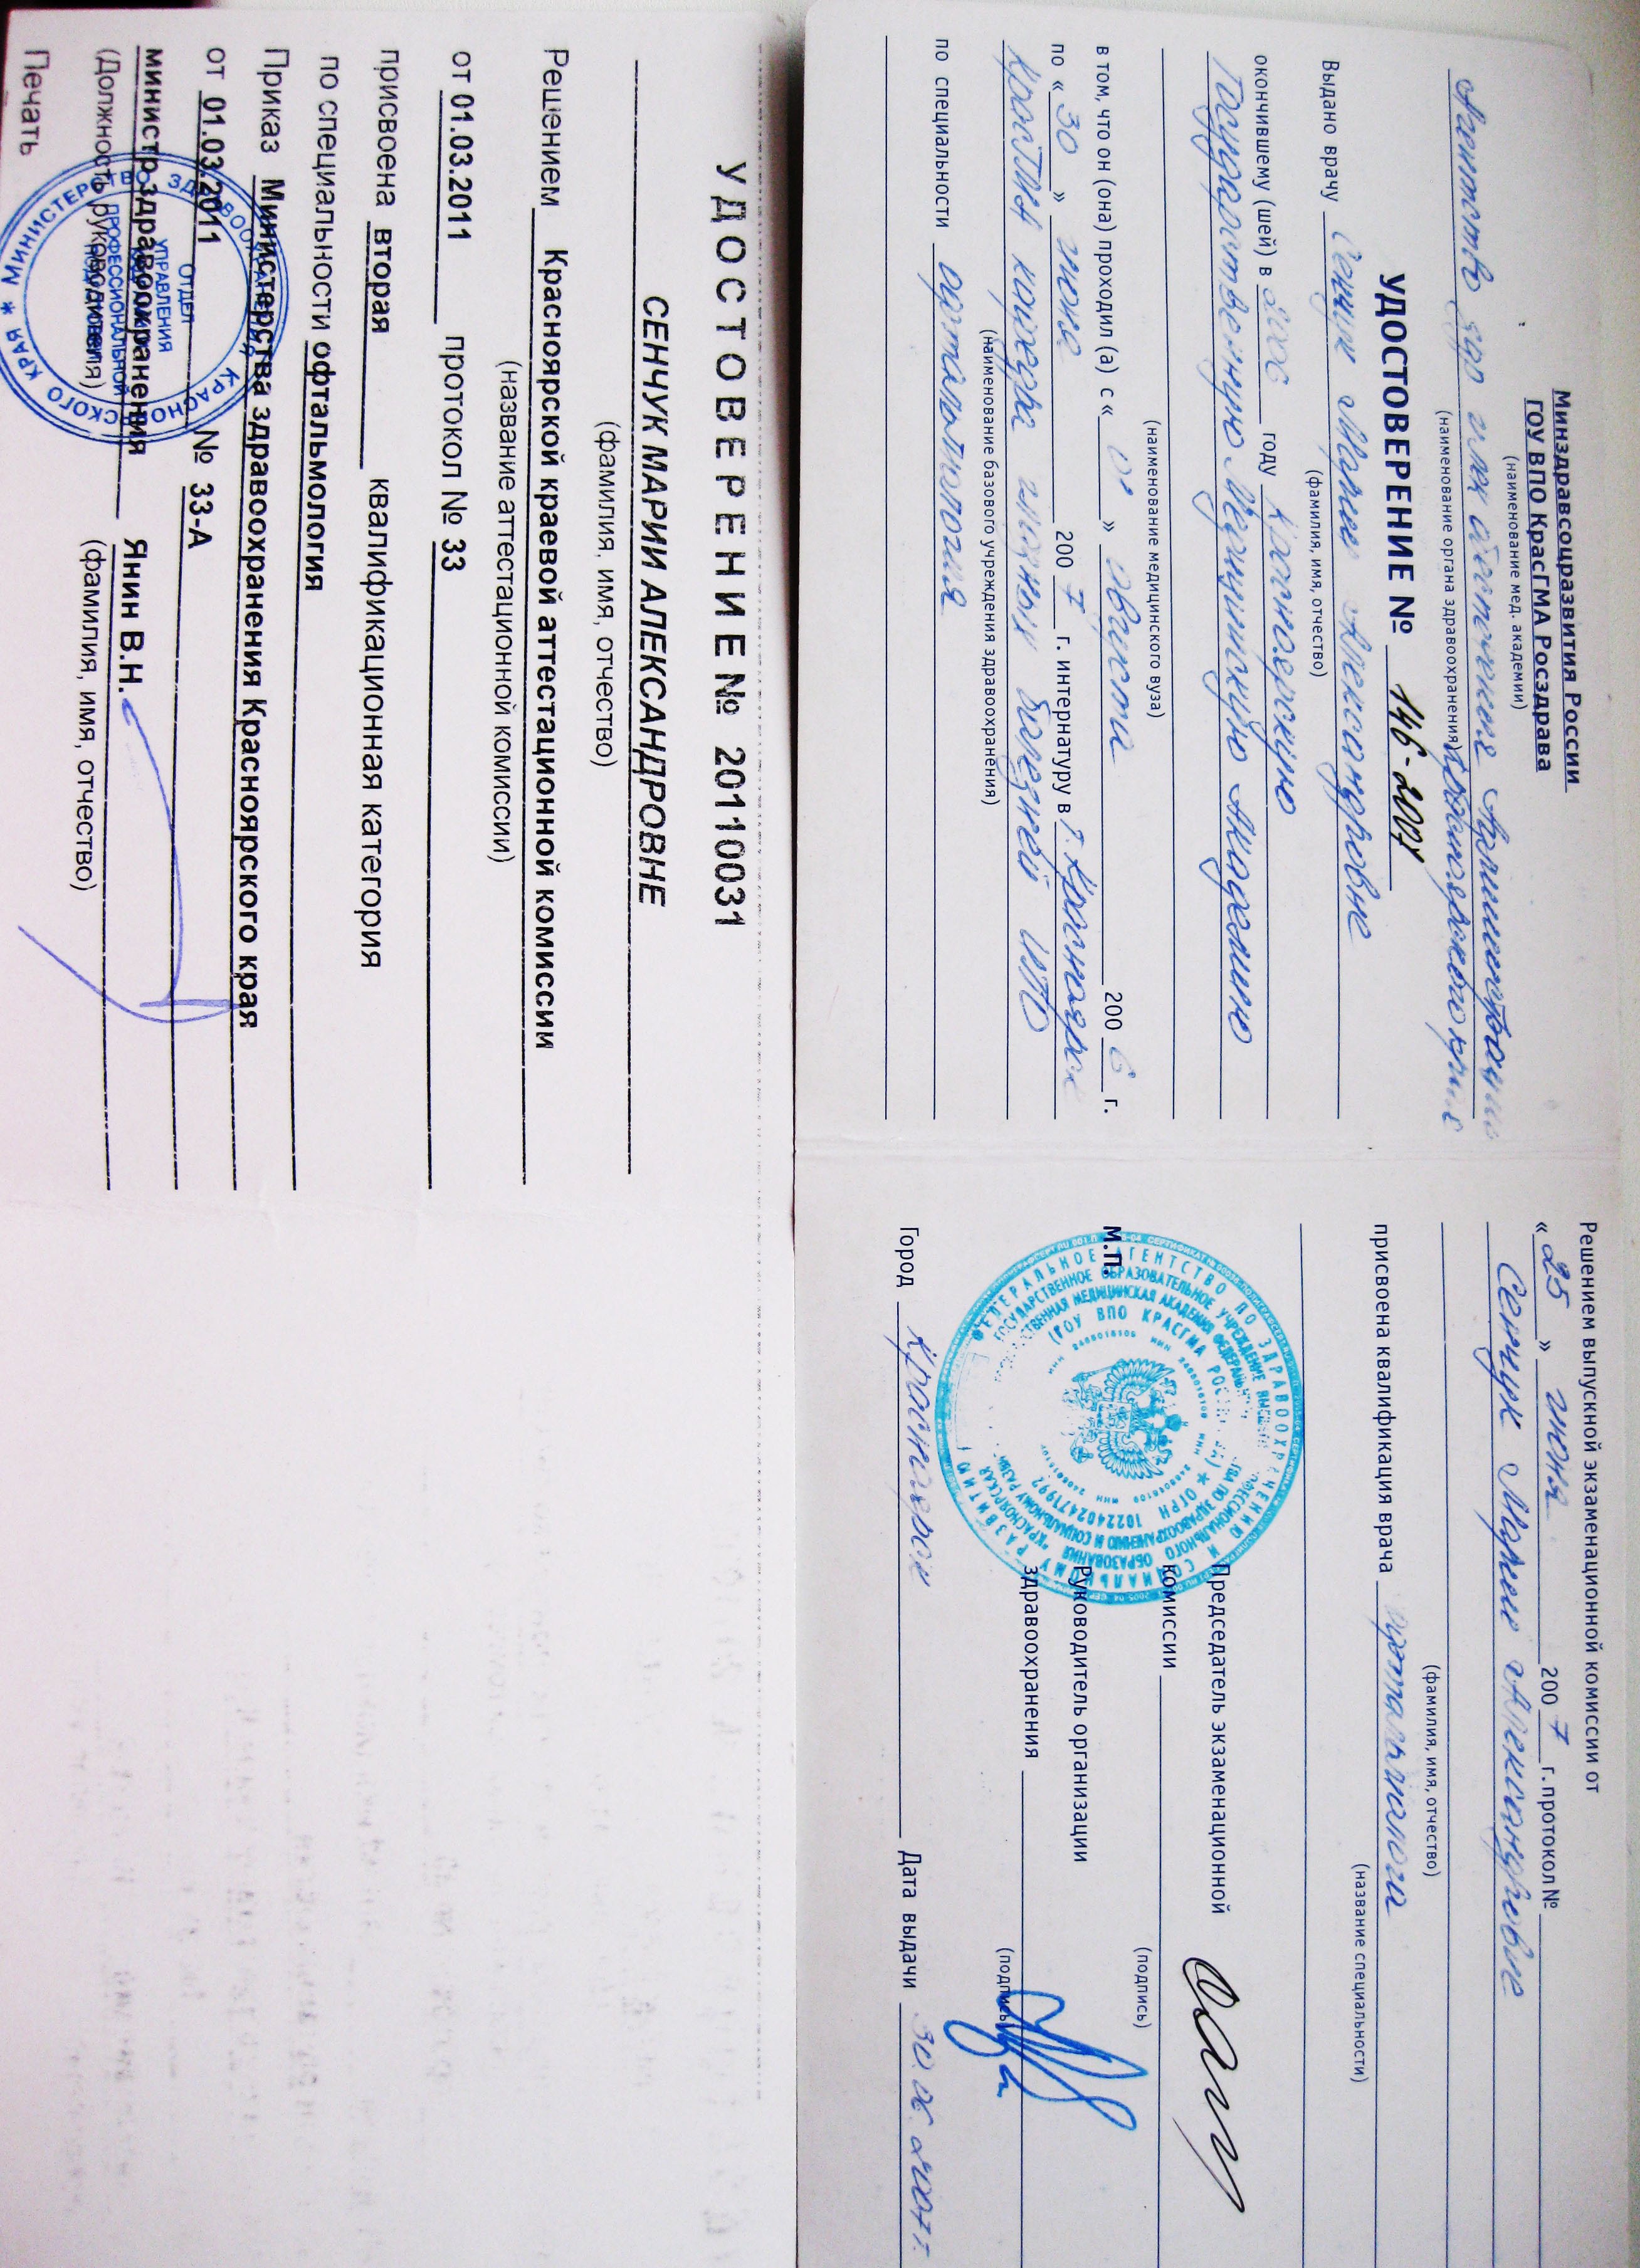 Минздравсоцразвития России
ГОУ ВПО КрасГМА Росздрава
(наименование мед. академии)
Агентство здр и лек обеспечения Администрации
(наименование органа здравоохранения) Красноярского края
УДОСТОВЕРЕНИЕ № 146-2007
Выдано врачу Сенчук Марие Александровне
(фамилия, имя, отчество)
окончившему (шей) в 2006 году Красноярскую
Государственную Медицинскую Академию
(наименование медицинского вуза)
в том, что он (она) проходил (а) с « 01 » августа 2006 г.
по « 30 » июня 2007 г. интернатуру в г. Красноярск
КрасГМА кафедра глазных болезней ИПО
(наименование базового учреждения здравоохранения)
по специальности офтальмология
Решением выпускной экзаменационной комиссии от
« 25 » июня 2007 г. протокол №
Сенчук Марие Александровне
(фамилия, имя, отчество)
присвоена квалификация врача офтальмолога
(название специальности)
Председатель экзаменационной
комиссии
(подпись)
М.П.
Руководитель организации
здравоохранения
(подпись)
Город Красноярск Дата выдачи 30.06.2007г.
ФЕДЕРАЛЬНОЕ АГЕНТСТВО ПО ЗДРАВООХРАНЕНИЮ И СОЦИАЛЬНОМУ РАЗВИТИЮ
(ГОУ ВПО КРАСГМА РОСЗДРАВА) * ОГРН 1022402471992
УДОСТОВЕРЕНИЕ № 20110031
СЕНЧУК МАРИИ АЛЕКСАНДРОВНЕ
(фамилия, имя, отчество)
Решением Красноярской краевой аттестационной комиссии
(название аттестационной комиссии)
от 01.03.2011 протокол № 33
присвоена вторая квалификационная категория
по специальности офтальмология
Приказ Министерства здравоохранения Красноярского края
от 01.03.2011 № 33-А
министр здравоохранения Янин В.Н.
(Должность руководителя) (фамилия, имя, отчество)
Печать
МИНИСТЕРСТВО ЗДРАВООХРАНЕНИЯ КРАСНОЯРСКОГО КРАЯ *
ОТДЕЛ
УПРАВЛЕНИЯ
ПРОФЕССИОНАЛЬНОЙ